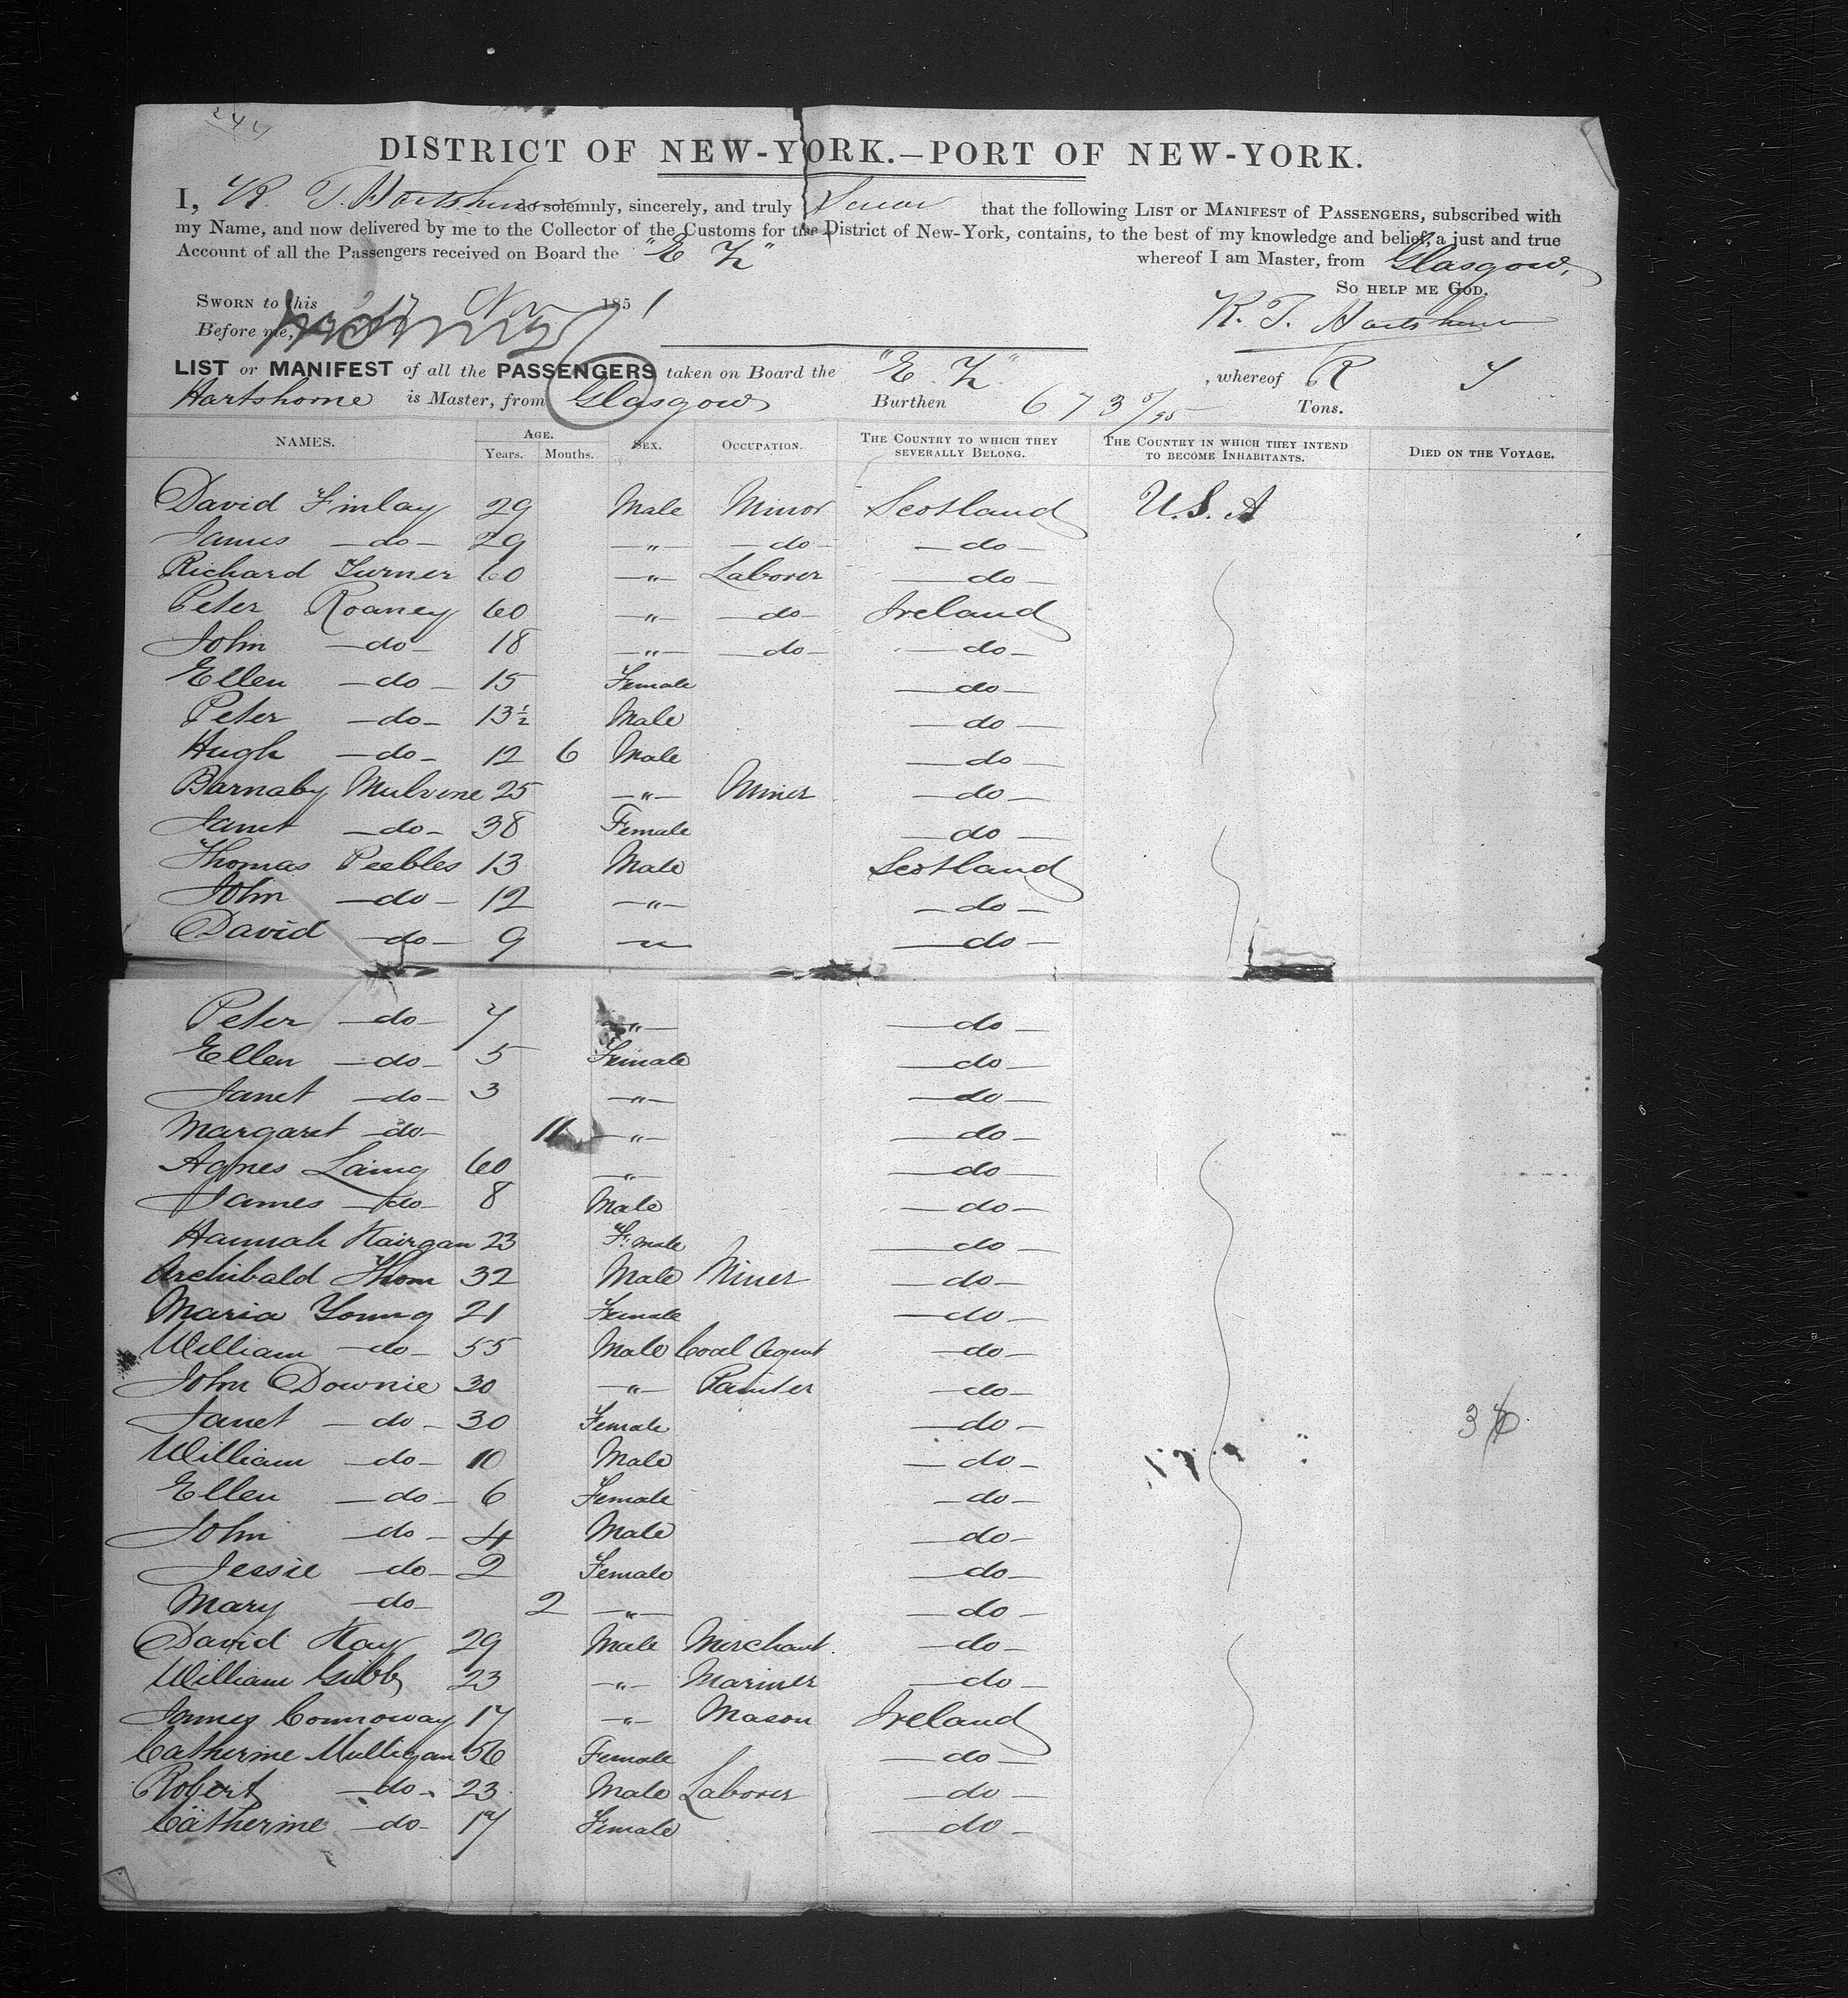 244
DISTRICT OF NEW-YORK.—PORT OF NEW-YORK.
I, R. T. Hartshorne do solemnly, sincerely, and truly Swear that the following LIST or MANIFEST of PASSENGERS, subscribed with
my Name, and now delivered by me to the Collector of the Customs for the District of New-York, contains, to the best of my knowledge and belief, a just and true
Account of all the Passengers received on Board the "E Z" whereof I am Master, from Glasgow,
SO HELP ME GOD.
SWORN to this 17 Nov 1851
R. T. Hartshorne
Before me,
LIST or MANIFEST of all the PASSENGERS taken on Board the "E. Z." , whereof R T
Hartshorne is Master, from Glasgow Burthen 673 5/95 Tons.
NAMES. AGE. Years. Months. SEX. OCCUPATION. THE COUNTRY TO WHICH THEY SEVERALLY BELONG. THE COUNTRY IN WHICH THEY INTEND TO BECOME INHABITANTS. DIED ON THE VOYAGE.
David Finlay 29 Male Minor Scotland U.S.A
James —do— 29 —"— —do— —do—
Richard Turner 60 —"— Laborer —do—
Peter Roaney 60 —"— —do— Ireland
John —do— 18 —"— —do— —do—
Ellen —do— 15 Female —do—
Peter —do— 13½ Male —do—
Hugh —do— 12 6 Male —do—
Barnaby Mulvine 25 —"— Miner —do—
Janet —do— 38 Female —do—
Thomas Peebles 13 Male Scotland
John —do— 12 —"— —do—
David —do— 9 —"— —do—
Peter —do— 7 —"— —do—
Ellen —do— 5 Female —do—
Janet —do— 3 —"— —do—
Margaret —do— 11 —"— —do—
Agnes Laing 60 —"— —do—
James —do— 8 Male —do—
Hannah Kairgan 23 Female —do—
Archibald Thom 32 Male Miner —do—
Maria Young 21 Female —do—
William —do— 55 Male Coal Agent —do—
John Downie 30 —"— Painter —do—
Janet —do— 30 Female —do—
William —do— 10 Male —do—
Ellen —do— 6 Female —do—
John —do— 4 Male —do—
Jessie —do— 2 Female —do—
Mary —do— 2 —"— —do—
David Kay 29 Male Merchant —do—
William Gibb 23 —"— Mariner —do—
James Connoway 17 —"— Mason Ireland
Catherine Mulligan 56 Female —do—
Robert —do— 23 Male Laborer —do—
Catherine —do— 17 Female —do—